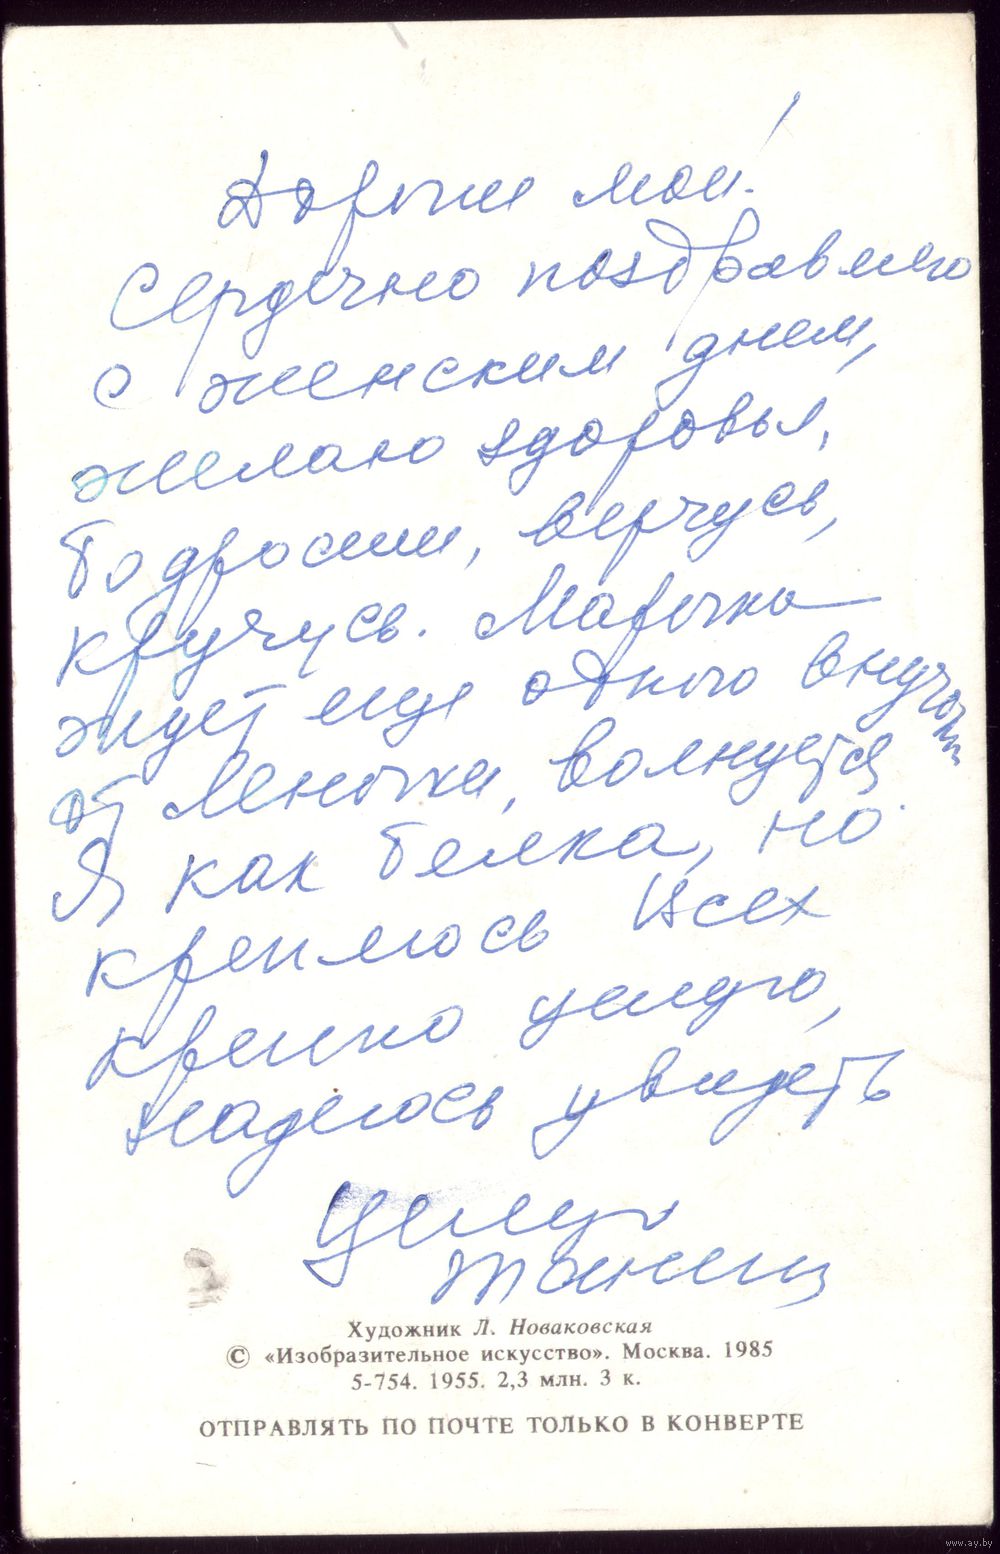 Дорогии мои!
Сердечно поздравляю
с женским днем,
желаю здоровья,
бодрости, верчусь,
кручусь. Марочка
ждет еще одного внучонка
от Леночки, волнуется
Я как белка, но
креплюсь Всех
крепко целую,
надеюсь увидеть
Целую
Художник Л. Новаковская
© «Изобразительное искусство». Москва. 1985
5-754. 1955. 2,3 млн. 3 к.
ОТПРАВЛЯТЬ ПО ПОЧТЕ ТОЛЬКО В КОНВЕРТЕ
www.ay.by